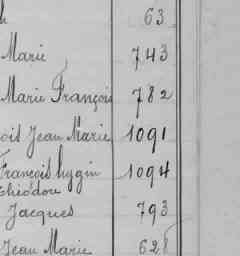 63
Marie 743
Marie François 782
ois Jean Marie 1091
François hygin 1094
théodore
Jacques 793
Jean Marie 628